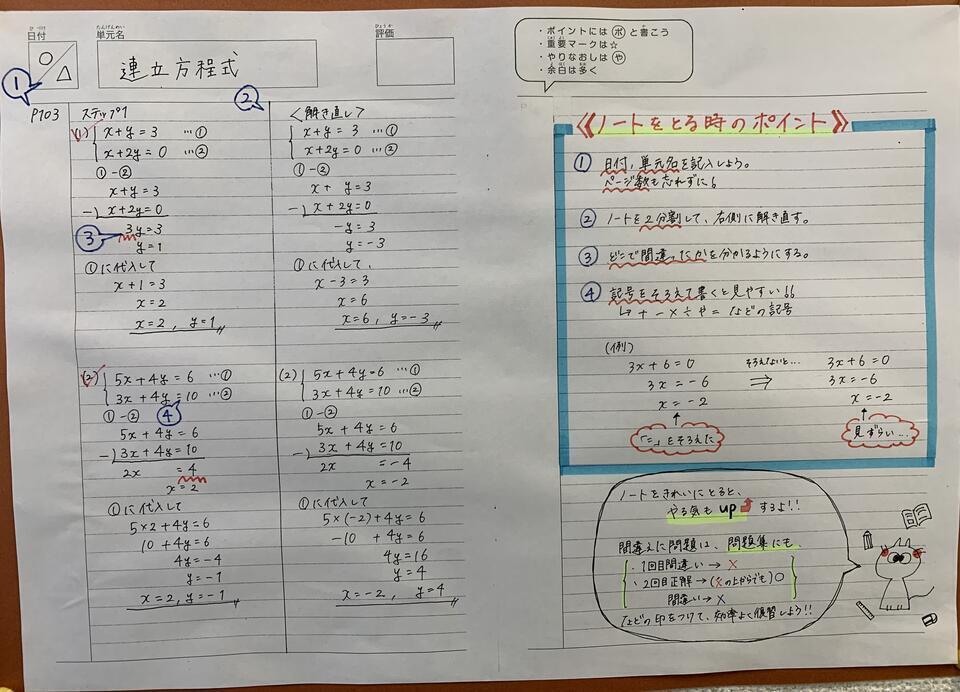 日付
○ △
単元名
連立方程式
評価
・ポイントには㋭と書こう
・重要マークは☆
・やりなおしは㋳
・余白は多く
①
②
P103
ステップ1
(1) x+y=3 …①
x+2y=0 …②
①-②
x+y=3
-) x+2y=0
③
3y=3
y=1
①に代入して
x+1=3
x=2
x=2, y=1
(2) 5x+4y=6 …①
3x+4y=10 …②
①-②
④
5x+4y=6
-) 3x+4y=10
2x =4
x=2
①に代入して
5×2+4y=6
10+4y=6
4y=-4
y=-1
x=2, y=-1
<解き直し>
x+y=3 …①
x+2y=0 …②
①-②
x+ y=3
-) x+2y=0
-y=3
y=-3
①に代入して、
x-3=3
x=6
x=6, y=-3
(2) 5x+4y=6 …①
3x+4y=10 …②
①-②
5x+4y=6
-) 3x+4y=10
2x =-4
x=-2
①に代入して
5×(-2)+4y=6
-10 +4y=6
4y=16
y=4
x=-2, y=4
《ノートをとる時のポイント》
① 日付,単元名を記入しよう。
ページ数も忘れずに!
② ノートを2分割して、右側に解き直す。
③ どこで間違ったかを分かるようにする。
④ 記号をそろえて書くと見やすい!!
↳ + - × ÷ や = などの記号
(例)
3x+6=0 そろえないと… 3x+6=0
3x=-6 ⇒ 3x=-6
x=-2 x=-2
「=」をそろえた
見ずらい…
ノートをきれいにとると、
やる気も up するよ!!
間違えた問題は、問題集にも、
・1回目間違い→×
・2回目正解→(×の上からでも)○
間違い→×
などの印をつけて、効率よく復習しよう!!